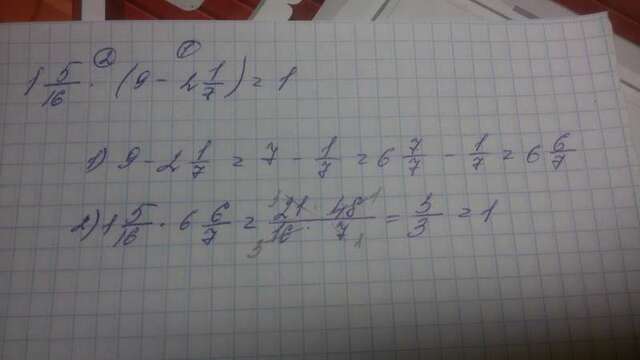 ② ①
1 5/16 · (9 - 2 1/7) = 1
1) 9 - 2 1/7 = 7 - 1/7 = 6 7/7 - 1/7 = 6 6/7
2) 1 5/16 · 6 6/7 = 21 · 48 / 16 · 7 = 3/3 = 1